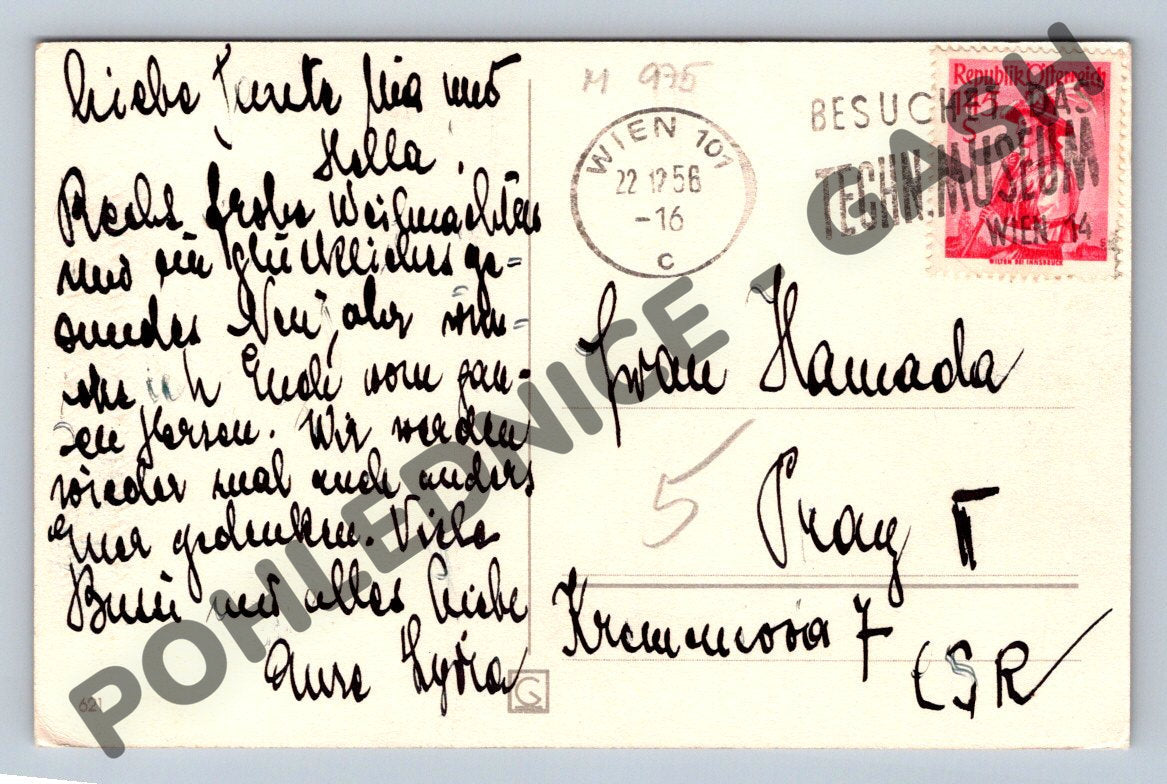 Liebe Tante Mia und
Hella!
Recht frohe Weihnachten
und ein glückliches ge=
sundes Neujahr wün=
ich Euch vom gan-
zen Herzen. Wir werden
wieder mal auch anders
Euer gedenken. Viele
Bussi und alles Liebe
Eure Lydia
621
G
M 975
WIEN 101
22.12.56
-16
c
BESUCHET DAS
TECHN.MUSEUM
WIEN 14
Republik Österreich
1
S
WILTEN BEI INNSBRUCK
Hamada
5
Prag II
7
ČSR
POHLEDNICE GASH